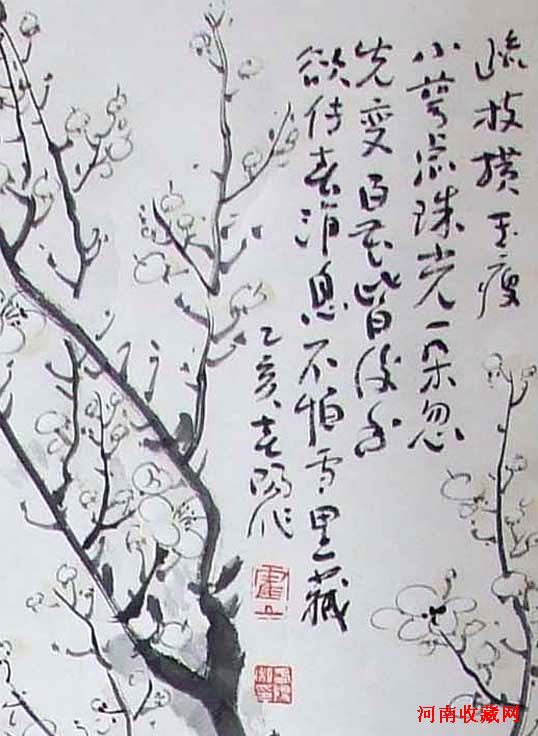 疏枝横玉瘦
小萼点珠光一朵忽
先变百花皆後香
欲传春消息不怕雪里藏
乙亥春阳作
河南收藏网